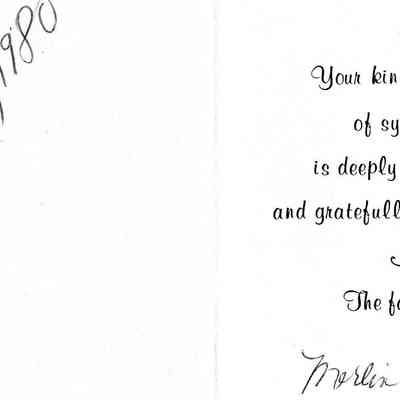 1980
Your kin
of sy
is deeply
and gratefull
The fa
Merlin